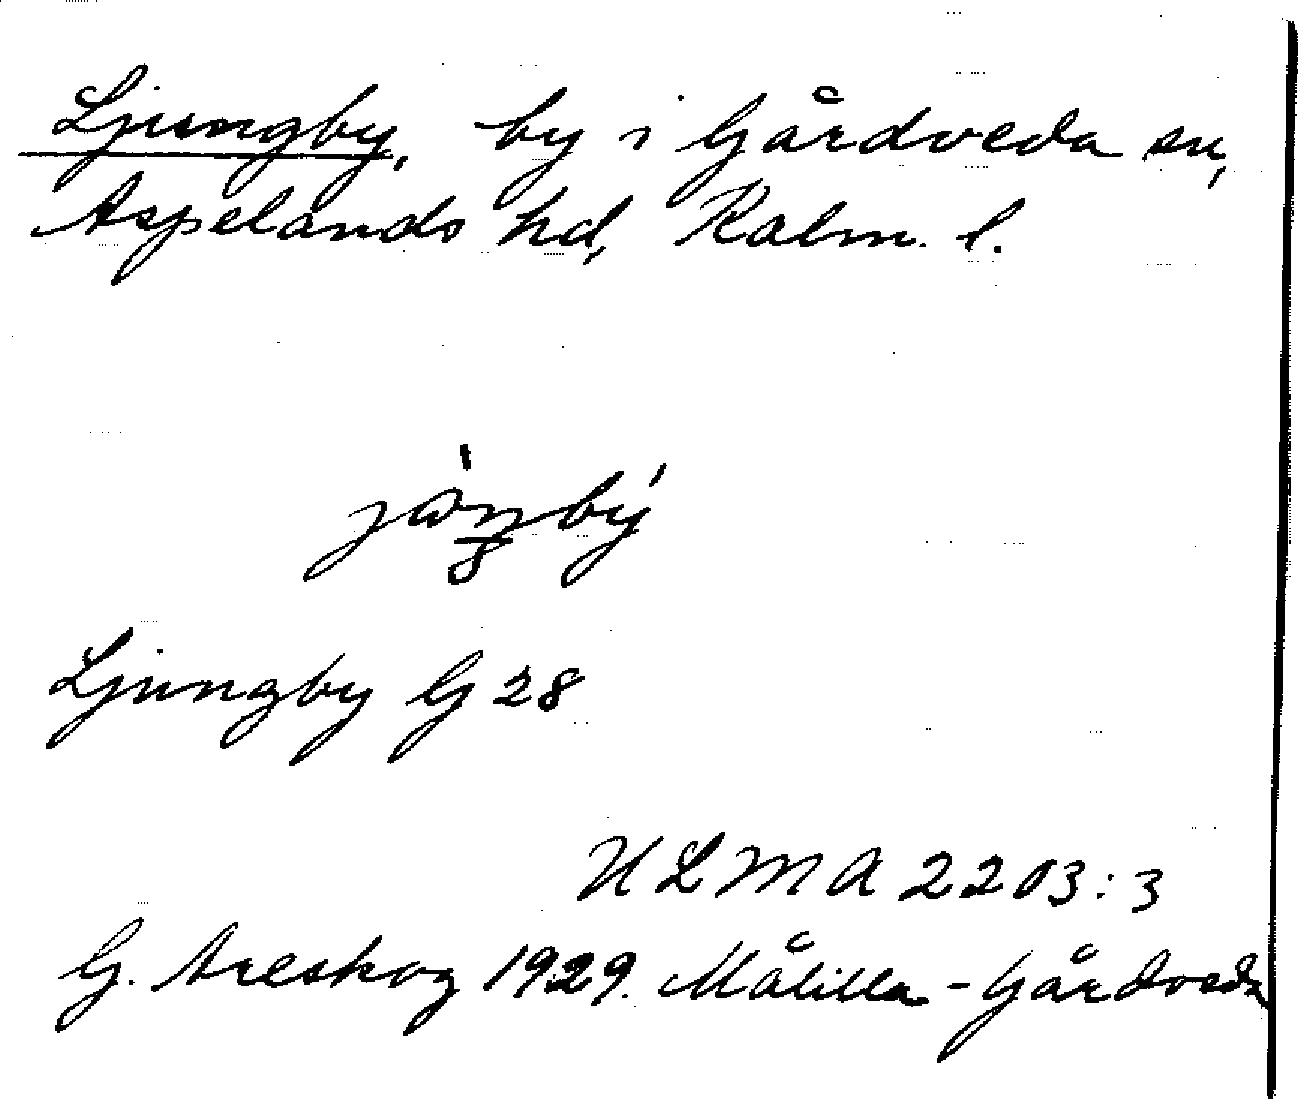 Ljungby, by i Gårdveda sn,
Aspelands hd, Kalm. l.
Ljungby G 28
ULMA 2203:3
G. Areskog 1929. Målilla-Gårdveda